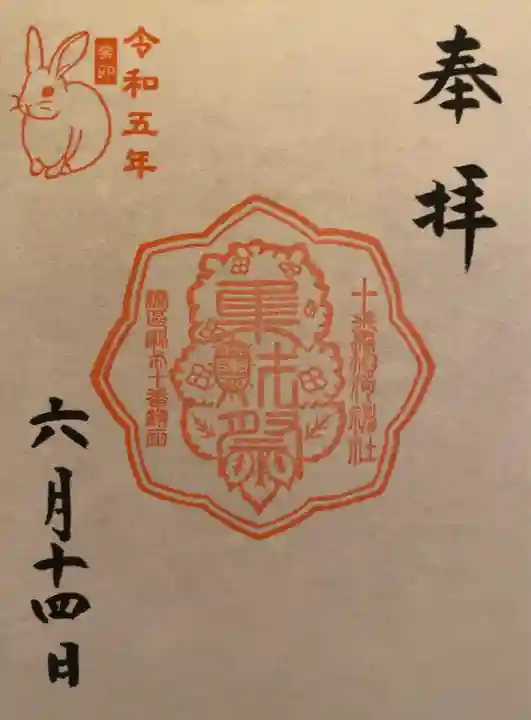 奉拝
十番稲荷神社
港区麻布十番鎮座
令和五年
癸卯
六月十四日